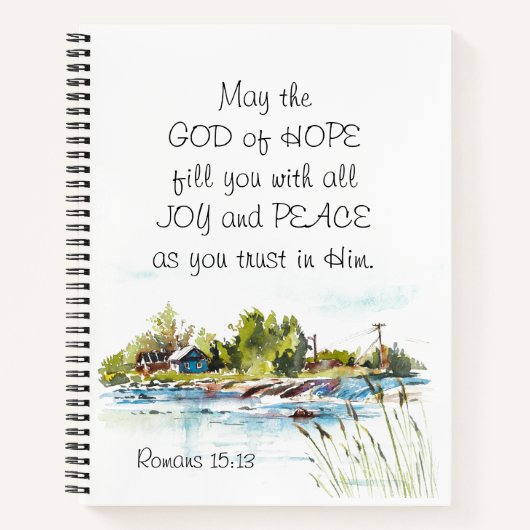 May the
GOD of HOPE
fill you with all
JOY and PEACE
as you trust in Him.
Romans 15:13